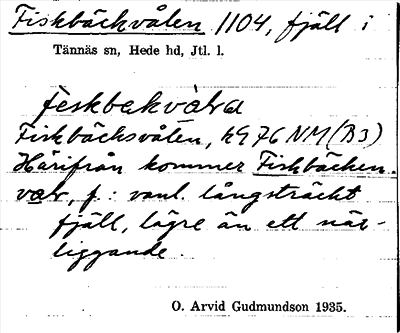 Fiskbäckvålen 1104, fjäll i
Tännäs sn, Hede hd, Jtl. l.
feskbekvàḷa
Fiskbäcksvålen, h976 NM (B3)
Härifrån kommer Fiskbäcken.
vaḷ, f.: vanl. långsträckt
fjäll, lägre än ett när-
liggande.
O. Arvid Gudmundson 1935.